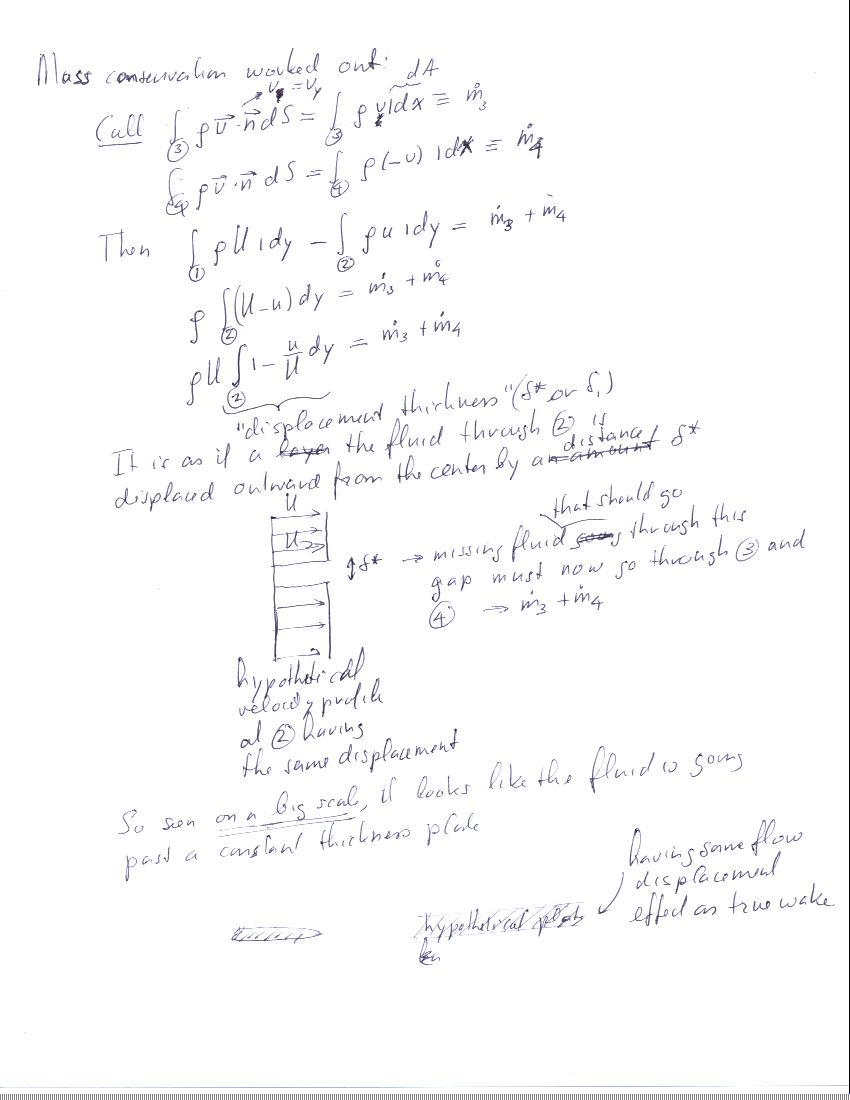 Mass conservation worked out:
Call ∫③ ρ v⃗·n⃗ dS = ∫③ ρ v 1dx ≡ ṁ₃
→ v = v_y
dA
∫④ ρ v⃗·n⃗ dS = ∫④ ρ(-v) 1dx ≡ ṁ₄
Then ∫① ρ U 1dy − ∫② ρ u 1dy = ṁ₃ + ṁ₄
ρ ∫② (U−u) dy = ṁ₃ + ṁ₄
ρU ∫② 1 − u/U dy = ṁ₃ + ṁ₄
"displacement thickness" (δ* or δ₁)
It is as if a layer the fluid through ② is
displaced outward from the center by an amount distance δ*
U
U
δ* → missing fluid that should go through this
gap must now go through ③ and
④ → ṁ₃ + ṁ₄
hypothetical
velocity profile
at ② having
the same displacement
So seen on a big scale, it looks like the fluid is going
past a constant thickness plate
hypothetical plate
having same flow
displacement
effect as true wake